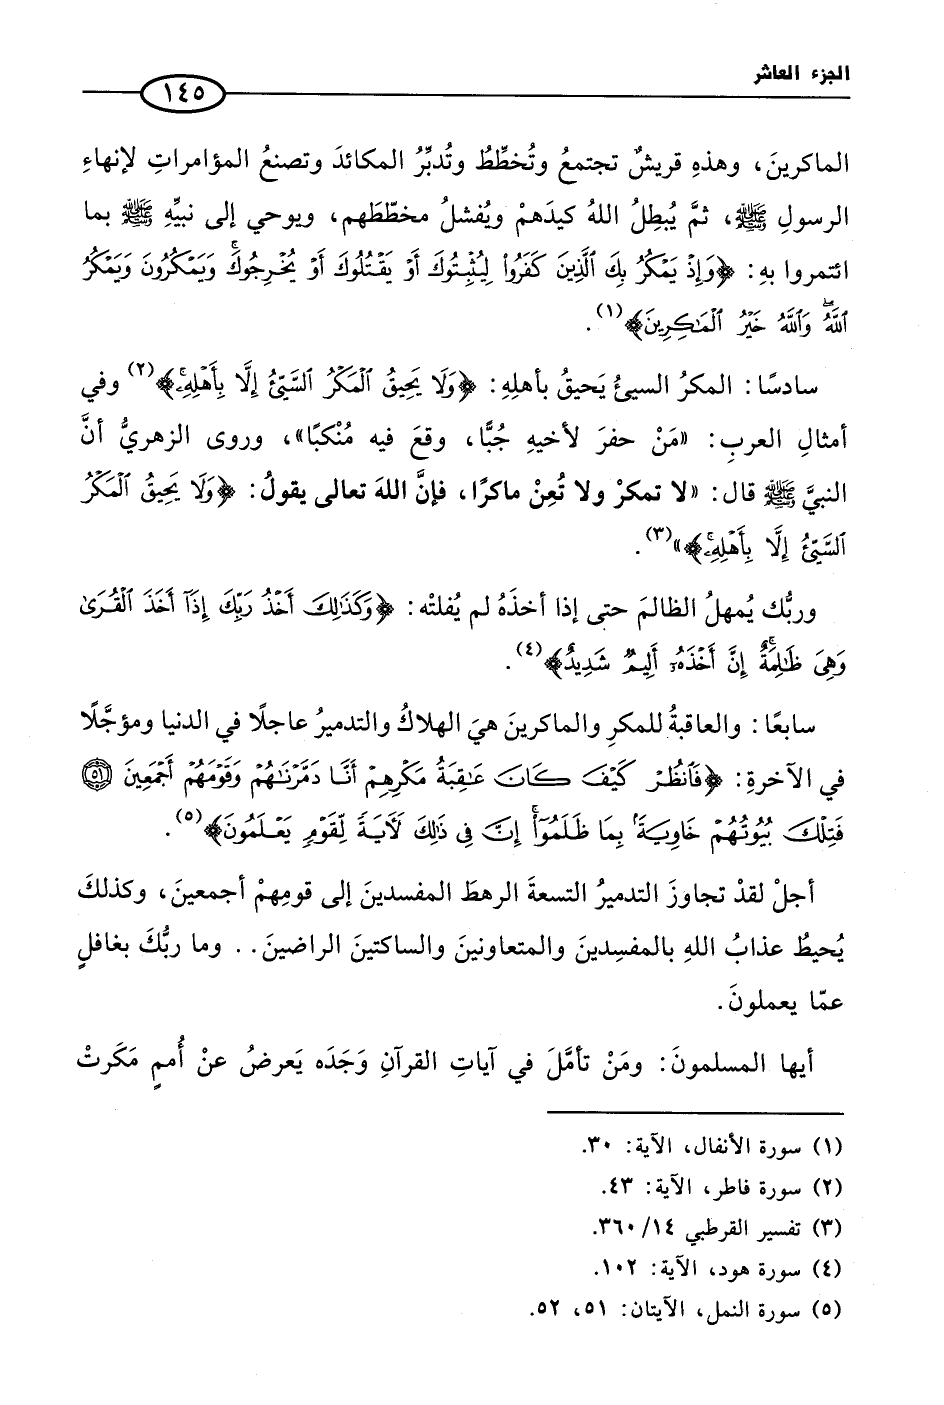 الجزء العاشر
١٤٥
الماكرينَ، وهذهِ قريشٌ تجتمعُ وتُخطِّطُ وتُدبِّرُ المكائدَ وتصنعُ المؤامراتِ لإنهاءِ
الرسولِ ﷺ، ثمَّ يُبطِلُ اللهُ كيدَهمْ ويُفشلُ مخطّطَهم، ويوحي إلى نبيِّهِ ﷺ بما
ائتمروا بهِ: ﴿وَإِذْ يَمْكُرُ بِكَ ٱلَّذِينَ كَفَرُواْ لِيُثْبِتُوكَ أَوْ يَقْتُلُوكَ أَوْ يُخْرِجُوكَۚ وَيَمْكُرُونَ وَيَمْكُرُ
ٱللَّهُۖ وَٱللَّهُ خَيْرُ ٱلْمَٰكِرِينَ﴾(١).
سادسًا: المكرُ السيئُ يَحيقُ بأهلِهِ: ﴿وَلَا يَحِيقُ ٱلْمَكْرُ ٱلسَّيِّئُ إِلَّا بِأَهْلِهِۦۚ﴾(٢) وفي
أمثالِ العربِ: «مَنْ حفرَ لأخيهِ جُبًّا، وقعَ فيه مُنْكبًا»، وروى الزهريُّ أنَّ
النبيَّ ﷺ قال: «لا تمكرْ ولا تُعِنْ ماكرًا، فإنَّ اللهَ تعالى يقولُ: ﴿وَلَا يَحِيقُ ٱلْمَكْرُ
ٱلسَّيِّئُ إِلَّا بِأَهْلِهِۦۚ﴾»(٣).
وربُّك يُمهلُ الظالمَ حتى إذا أخذَهُ لم يُفلتْه: ﴿وَكَذَٰلِكَ أَخْذُ رَبِّكَ إِذَآ أَخَذَ ٱلْقُرَىٰ
وَهِىَ ظَٰلِمَةٌۚ إِنَّ أَخْذَهُۥٓ أَلِيمٌ شَدِيدٌ﴾(٤).
سابعًا: والعاقبةُ للمكرِ والماكرينَ هيَ الهلاكُ والتدميرُ عاجلًا في الدنيا ومؤجَّلًا
في الآخرةِ: ﴿فَٱنظُرْ كَيْفَ كَانَ عَٰقِبَةُ مَكْرِهِمْ أَنَّا دَمَّرْنَٰهُمْ وَقَوْمَهُمْ أَجْمَعِينَ ٥١
فَتِلْكَ بُيُوتُهُمْ خَاوِيَةًۢ بِمَا ظَلَمُوٓاْۚ إِنَّ فِى ذَٰلِكَ لَأٓيَةً لِّقَوْمٍ يَعْلَمُونَ﴾(٥).
أجلْ لقدْ تجاوزَ التدميرُ التسعةَ الرهطَ المفسدينَ إلى قومِهمْ أجمعينَ، وكذلكَ
يُحيطُ عذابُ اللهِ بالمفسِدينَ والمتعاونينَ والساكتينَ الراضينَ.. وما ربُّكَ بغافلٍ
عمّا يعملونَ.
أيها المسلمونَ: ومَنْ تأمَّلَ في آياتِ القرآنِ وَجَدَه يَعرضُ عنْ أُممٍ مَكَرتْ
(١) سورة الأنفال، الآية: ٣٠.
(٢) سورة فاطر، الآية: ٤٣.
(٣) تفسير القرطبي ١٤/ ٣٦٠.
(٤) سورة هود، الآية: ١٠٢.
(٥) سورة النمل، الآيتان: ٥١، ٥٢.